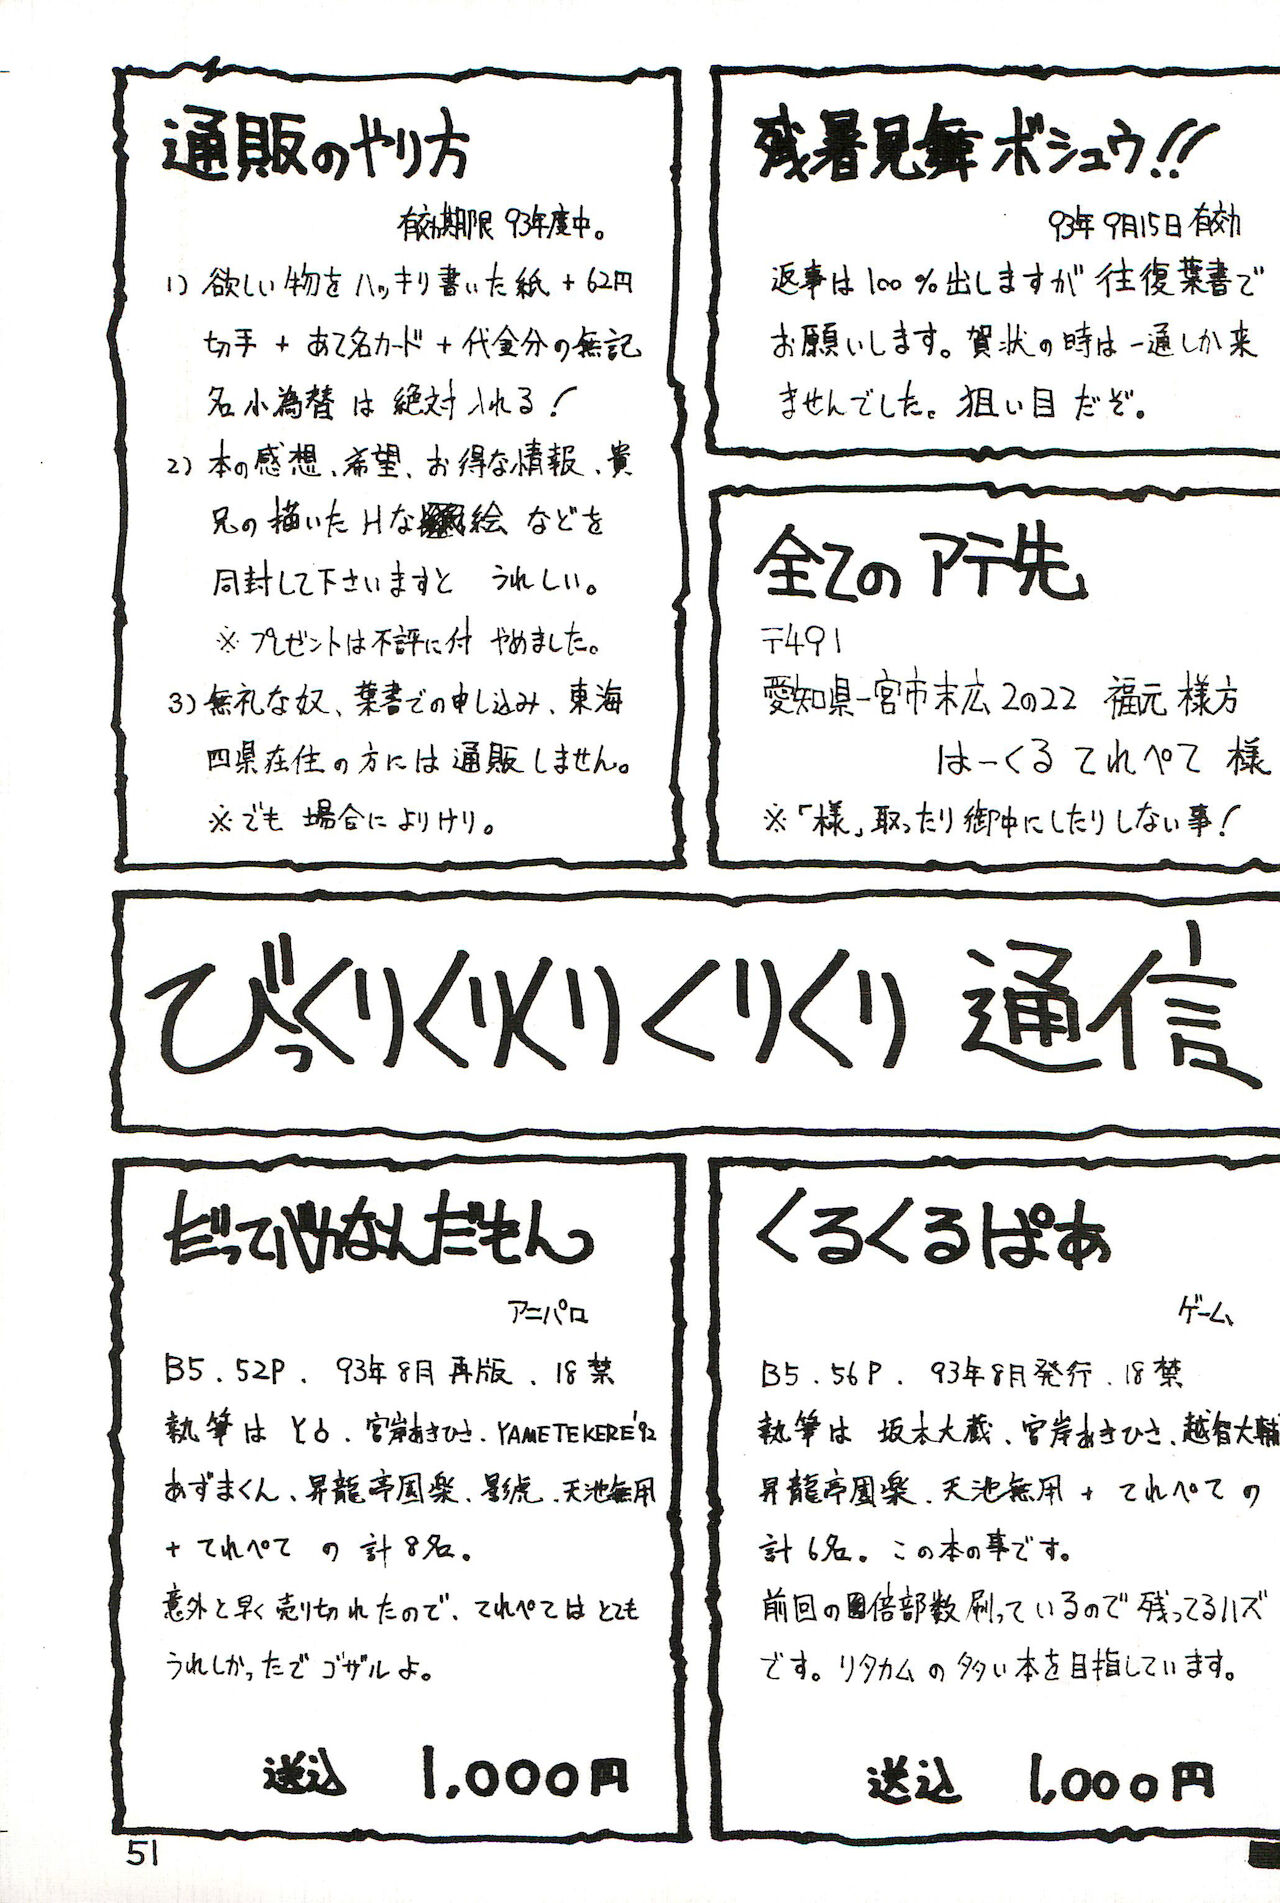 通販のやり方
有効期限 93年度中。
1) 欲しい物をハッキリ書いた紙 + 62円
切手 + あて名カード + 代金分の無記
名小為替 は 絶対入れる!
2) 本の感想、希望、お得な情報、貴
兄の描いた Hな 絵 などを
同封して下さいますと うれしい。
※ プレゼントは不評に付 やめました。
3) 無礼な奴、葉書での申し込み、東海
四県在住の方には通販しません。
※でも 場合によりけり。
残暑見舞ボシュウ!!
93年9月15日有効
返事は100%出しますが往復葉書で
お願いします。賀状の時は一通しか来
ませんでした。狙い目だぞ。
全てのアテ先
〒491
愛知県一宮市末広2の22 福元様方
はーくるてれぺて 様
※「様」取ったり御中にしたりしない事!
びっくりくりくりくりくり通信
だってバカなんだもんっ
アニパロ
B5.52P. 93年8月再版.18禁
執筆は とも、宮岸あきひさ、YAMETEKERE'92
あずまくん、昇龍亭園楽、影虎、天池無用
+ てれぺて の 計8名。
意外と早く売り切れたので、てれぺてはとても
うれしかったでゴザルよ。
送込 1,000円
くるくるぱあ
ゲーム
B5.56P. 93年8月発行.18禁
執筆は 坂本大蔵、宮岸あきひさ、越智大輔
昇龍亭園楽、天池無用 + てれぺての
計6名。この本の事です。
前回の 倍部数刷っているので残ってるハズ
です。リタカムの多い本を目指しています。
送込 1,000円
51